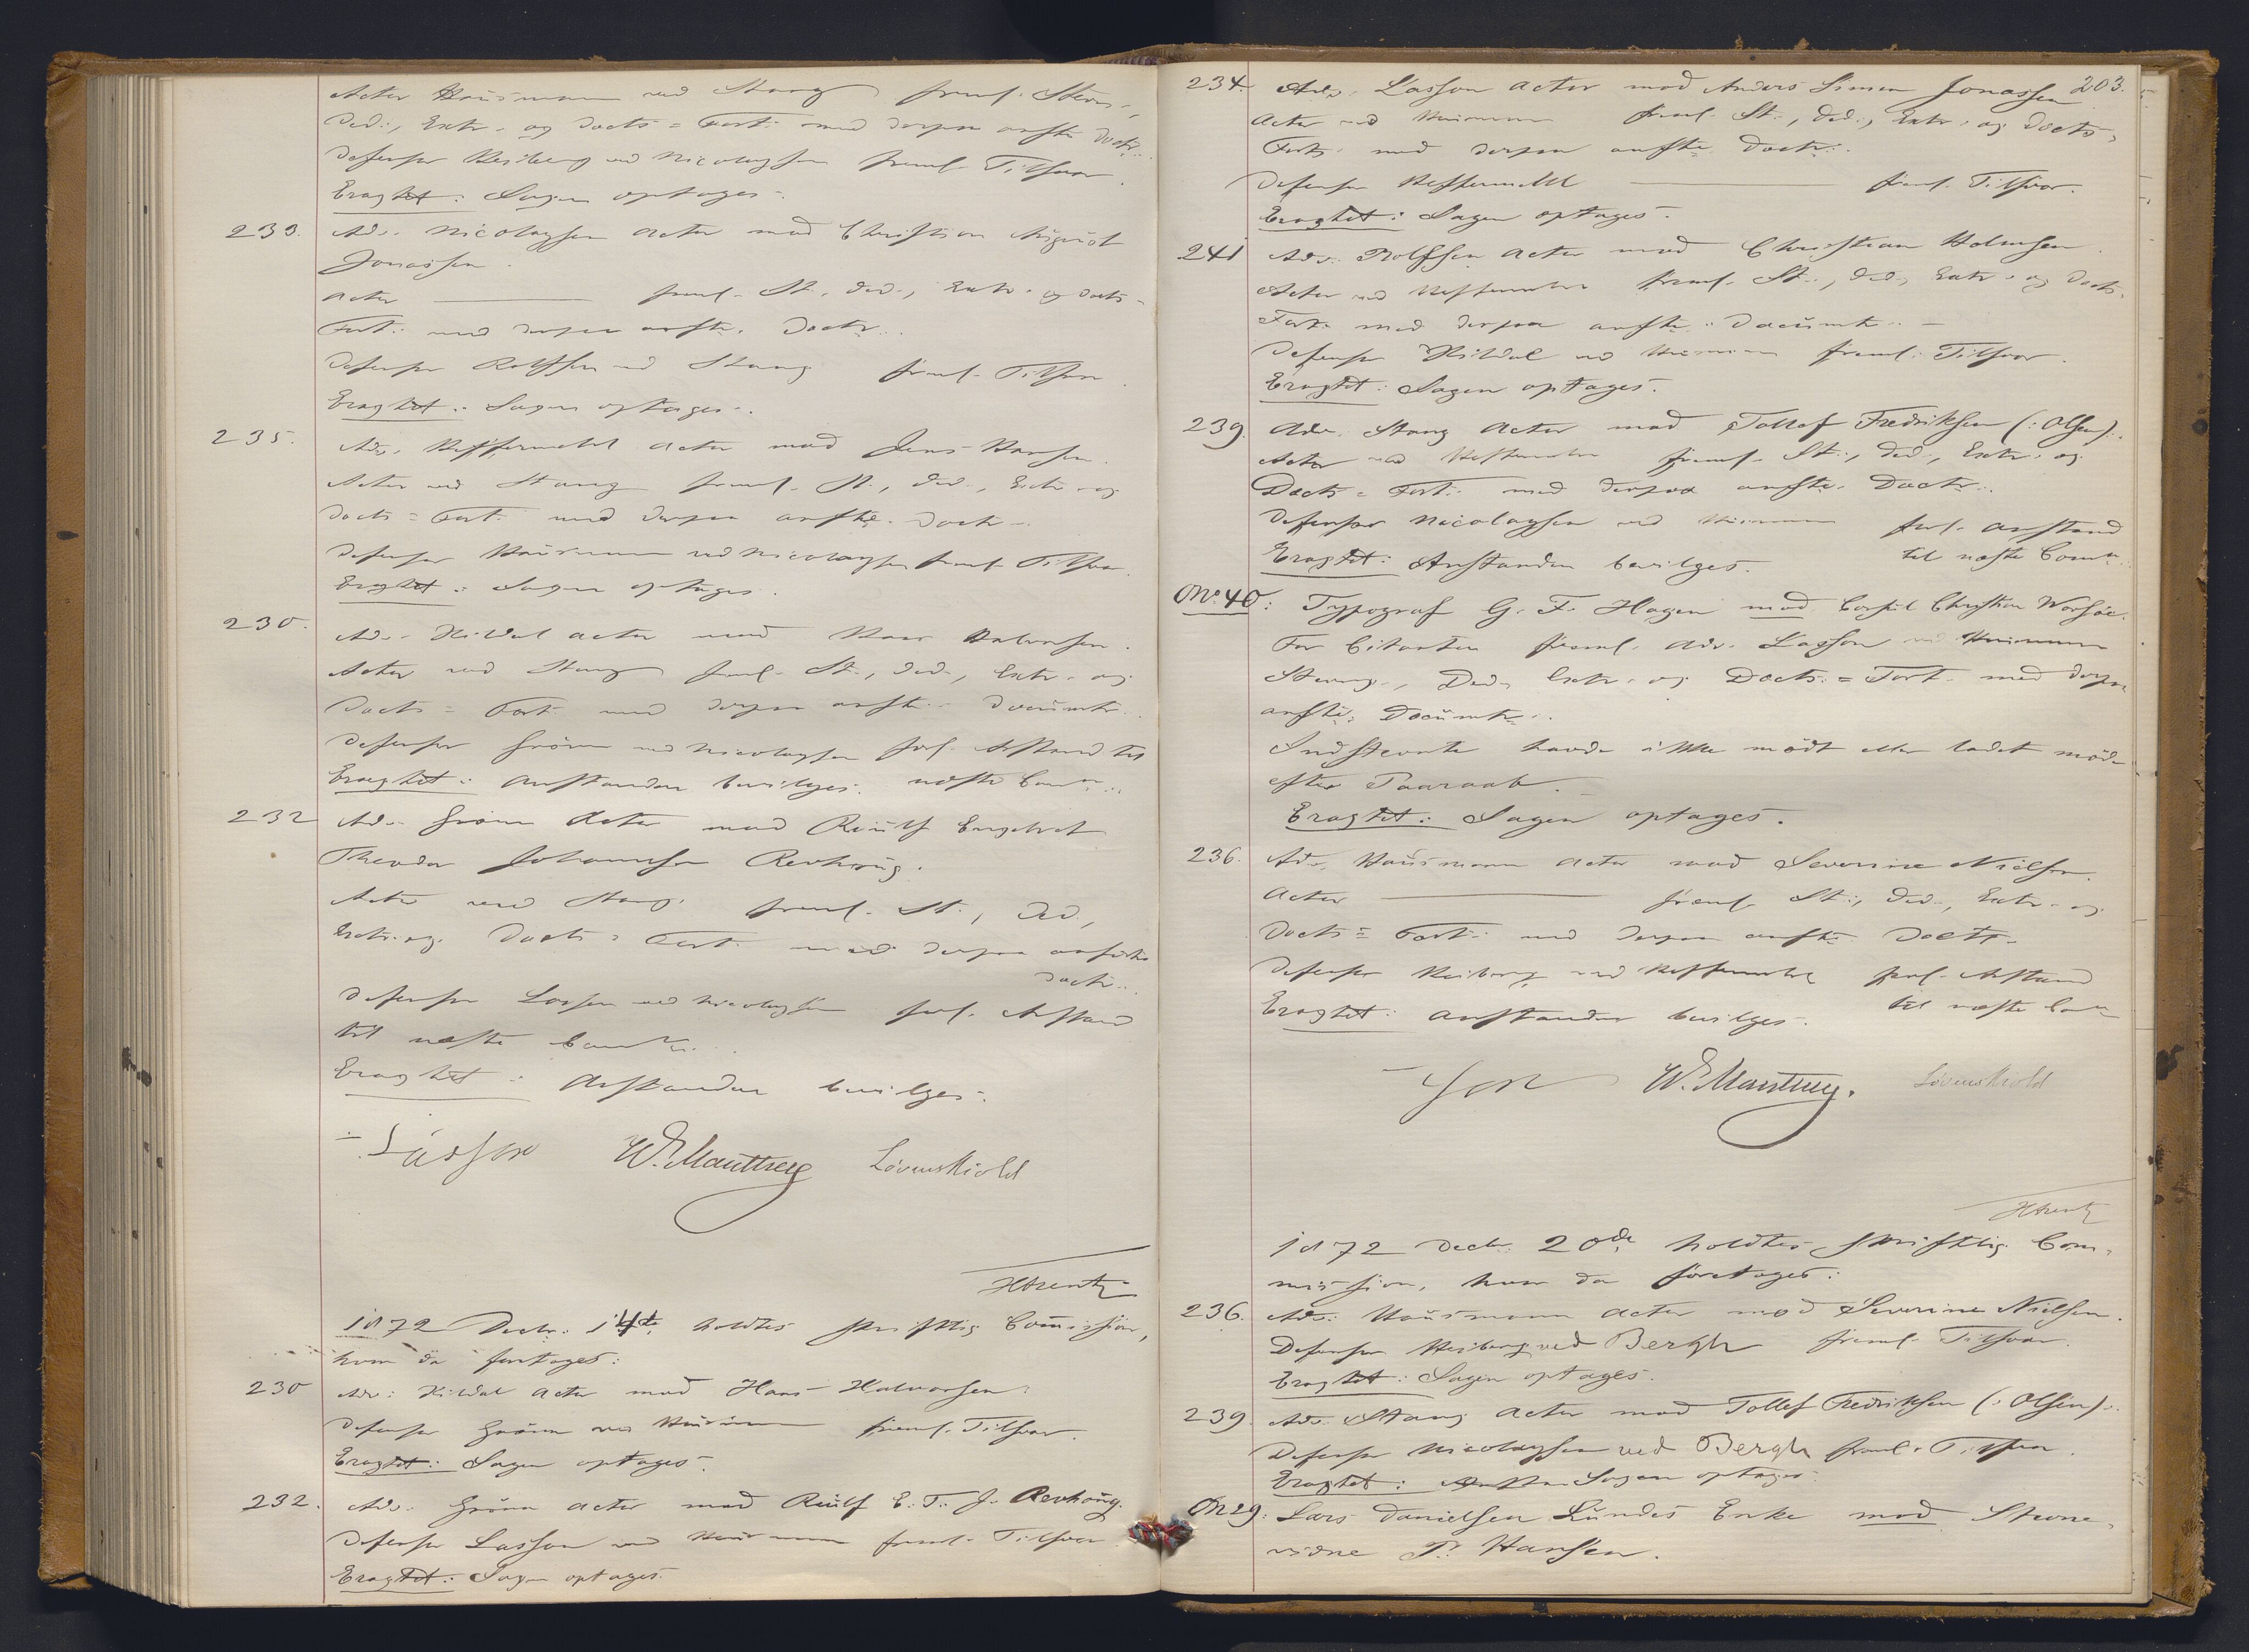 Actor Hausmann ved Stang freml. Stevn.,
Ded., Extr. og Docts = Fort. med derpaa anfte Doctr..
Defensor Heiberg ved Nicolaysen freml. Tilsvar.
Eragtet: Sagen optages.
233. Adv. Nicolaysen Actor mod Christian August
Jonassen.
Actor freml. St., Ded., Extr. og Docts =
Fort. med derpaa anfte. Doctr..
Defensor Rolfsen ved Stang freml. Tilsvar.
Eragtet: Sagen optages.
235. Adv. Keffermehl Actor mod Jens Hansen.
Actor ved Stang freml. St., Ded., Extr. og
Docts = Fort. med derpaa anfte. Doctr.
Defensor Hausmann ved Nicolaysen freml. Tilsvar.
Eragtet: Sagen optages.
230. Adv. Kildal Actor mod Hans Halvorsen.
Actor ved Stang freml. St., Ded., Extr. og
Docts = Fort. med derpaa anfte. Documtr.
Defensor Grönn ved Nicolaysen forl. Anstand til
Eragtet: Anstanden bevilges. næste Comn..
232 Adv. Grönn Actor mod Raulf Engebret
Theodor Johannesen Revhaug.
Actor ved Stang. freml. St., Ded.,
Extr. og Docts = Fort. med derpaa anførte
Doctr..
Defensor Lasson ved Nicolaysen forl. Anstand
til næste Comn..
Eragtet: Anstanden bevilges.
Lasson W. E. Manthey Løvenskiold
HArentz
1872 Decbr. 14de, holdtes skriftlig Commission,
hvor da foretoges:
230 Adv: Kildal Actor mod Hans Halvorsen.
Defensor Grönn ved Hausmann freml. Tilsvar.
Eragtet: Sagen optages.
232. Adv. Grönn Actor mod Raulf E. T. J. Revhaug.
Defensor Lasson ved Hausmann freml. Tilsvar
Eragtet: Sagen optages.
203.
234. Adv. Lasson Actor mod Anders Simen Jonassen
Actor ved Hausmann freml. St., Ded., Extr. og Docts =
Fort. med derpaa anfte Doctr..
Defensor Keffermehl freml. Tilsvar.
Eragtet: Sagen optages.
241 Adv. Rolfsen Actor mod Christian Holmsen.
Actor ved Keffermehl freml. St., Ded., Extr. og Docts.
Fort. med derpaa anfte. Documtr..
Defensor Kildal ved Hausmann freml. Tilsvar.
Eragtet: Sagen optages.
239. Adv. Stang Actor mod Tollef Fredriksen (: Olsen).
Actor ved Keffermehl freml. St., Ded., Extr. og
Docts = Fort. med derpaa anfte. Doctr..
Defensor Nicolaysen ved Hausmann forl. Anstand
Eragtet: Anstanden bevilges. til næste Comn..
No. 40: Typograf G. F. Hagen mod Consul Christian Worsöe.
For Citanten freml. Adv. Lasson ved Hausmann
Stevng., Ded., Extr. og Docts. = Fort. med derpaa
anfte. Documtr..
Indstevnte havde ikke mödt eller ladet möde
efter Paaraab.
Eragtet: Sagen optages.
236. Adv. Hausmann Actor mod Severine Nielsen.
Actor freml. St., Ded., Extr. og
Docts = Fort. med derpaa anfte Doctr.
Defensor Heiberg ved Keffermehl forl. Anstand
Eragtet: Anstanden bevilges. til næste Comn
W. E. Manthey. Løvenskiold
HArentz
1872 Decbr. 20de holdtes skriftlig Com-
mission, hvor da foretoges:
236. Adv. Hausmann Actor mod Severine Nielsen.
Defensor Heiberg ved Bergh freml. Tilsvar.
Eragtet: Sagen optages.
239. Adv. Stang Actor mod Tollef Fredriksen (: Olsen).
Defensor Nicolaysen ved Bergh freml. Tilsvar.
Eragtet: Sagen optages.
No 29: Lars Danielsen Lundes Enke mod Stevne-
vidne P. Hansen.